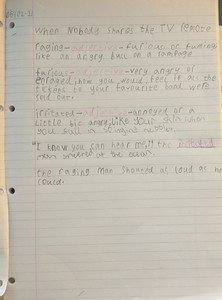 06/02/21
When Nobody shares the TV remote
raging - adjective - furious or fuming
like an angry bull on a rampage
furious - adjective - very angry or
enraged, how you would feel if all the
tickets to your favourite band were
sold out.
irritated - adjective - annoyed or a
little bit angry, like your skin when
you fall in stinging nettles.
"I know you can hear me!" the irritated
man at the
the raging man shouted as loud as he
could.